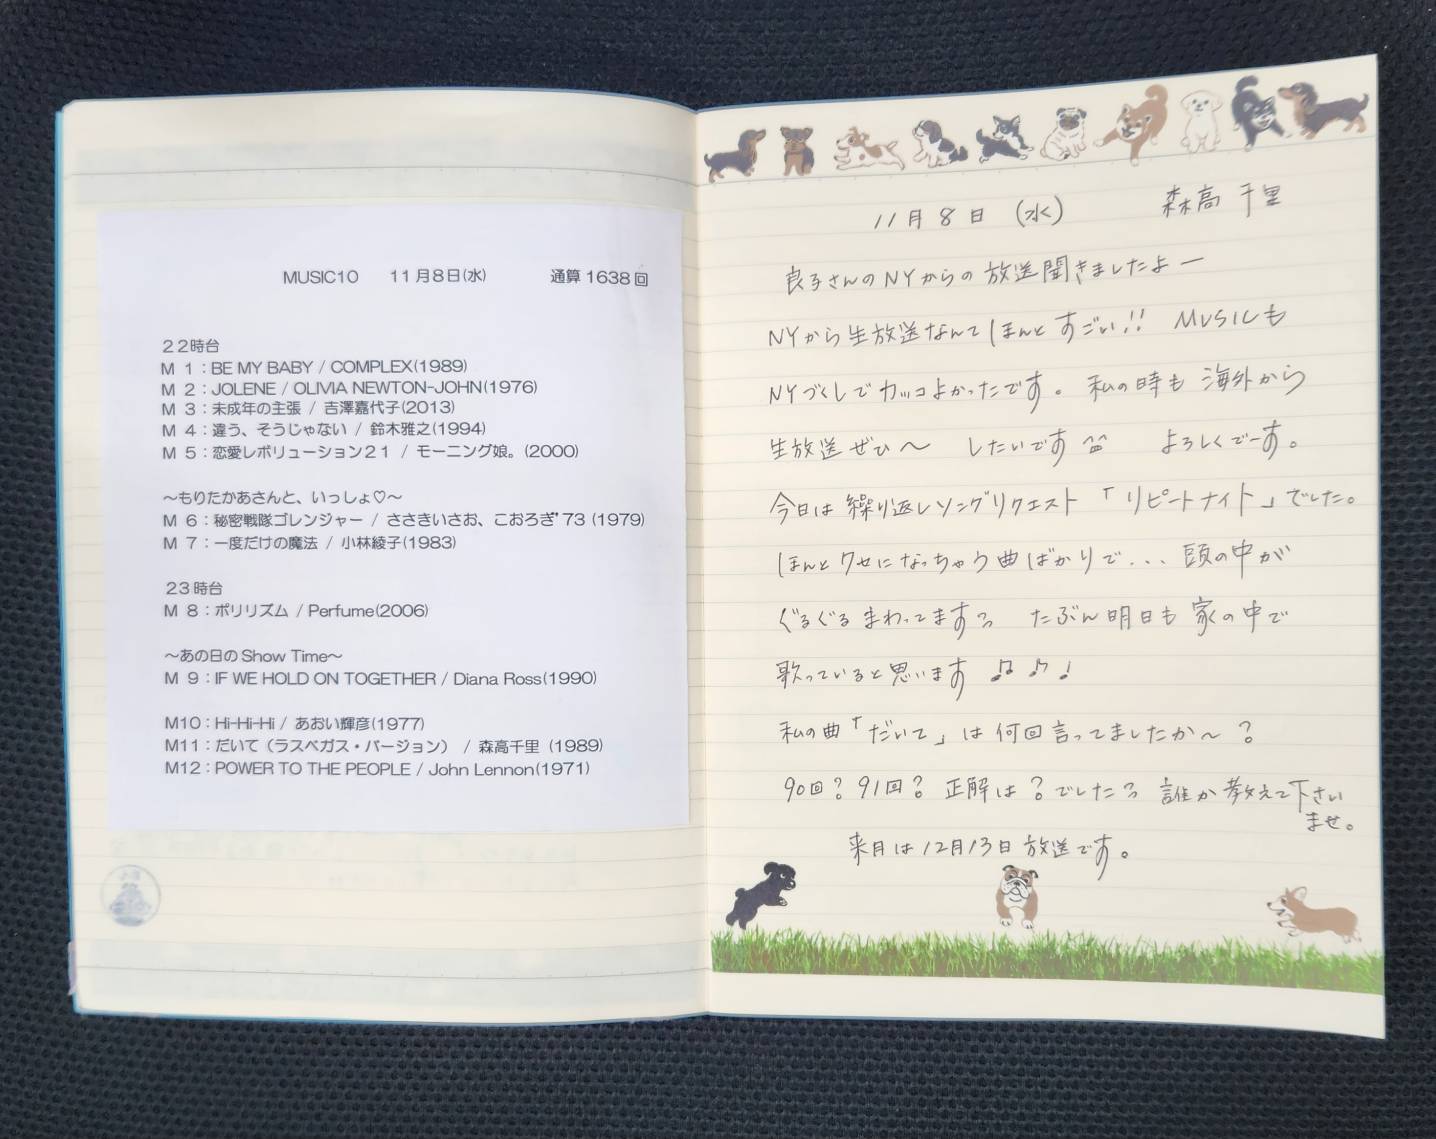 MUSIC10　11月8日(水)　通算1638回
22時台
M 1：BE MY BABY / COMPLEX(1989)
M 2：JOLENE / OLIVIA NEWTON-JOHN(1976)
M 3：未成年の主張 / 吉澤嘉代子(2013)
M 4：違う、そうじゃない / 鈴木雅之(1994)
M 5：恋愛レボリューション21 / モーニング娘。(2000)
～もりたかあさんと、いっしょ♡～
M 6：秘密戦隊ゴレンジャー / ささきいさお、こおろぎ'73 (1979)
M 7：一度だけの魔法 / 小林綾子(1983)
23時台
M 8：ポリリズム / Perfume(2006)
～あの日のShow Time～
M 9：IF WE HOLD ON TOGETHER / Diana Ross(1990)
M10：Hi-Hi-Hi / あおい輝彦(1977)
M11：だいて（ラスベガス・バージョン） / 森高千里 (1989)
M12：POWER TO THE PEOPLE / John Lennon(1971)
11月8日（水）　森高千里
良子さんのNYからの放送聞きましたよー
NYから生放送なんてほんとすごい!! MUSICも
NYづくしでカッコよかったです。私の時も海外から
生放送ぜひ〜　したいです^^　よろしくでーす。
今日は繰り返しソングリクエスト「リピートナイト」でした。
ほんとクセになっちゃう曲ばかりで...頭の中が
ぐるぐるまわってますっ　たぶん明日も家の中で
歌っていると思います♫♪♩
私の曲「だいて」は何回言ってましたか〜？
90回？91回？正解は？でしたっ　誰か教えて下さい
ませ。
来月は12月13日放送です。